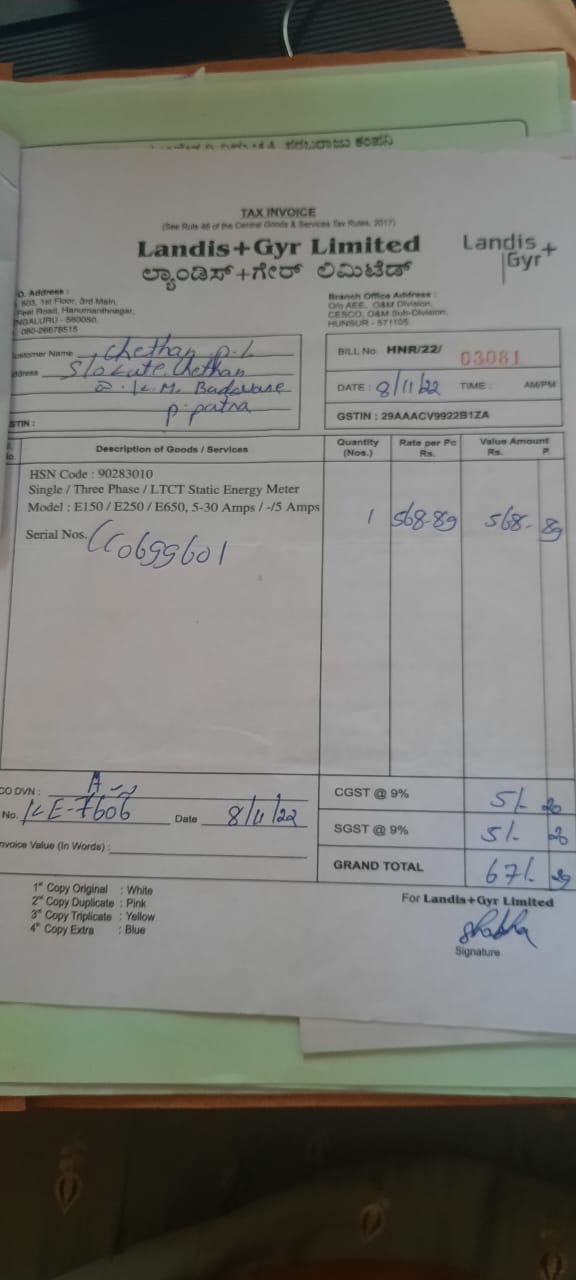 TAX INVOICE
(See Rule 46 of the Central Goods & Services Tax Rules, 2017)
Landis+Gyr Limited
ಲ್ಯಾಂಡಿಸ್+ಗೇರ್ ಲಿಮಿಟೆಡ್
Landis+
Gyr
O. Address :
503, 1st Floor, 3rd Main,
Road, Hanumanthnagar,
NGALURU - 560050.
080-26678515
Branch Office Address :
O/o AEE, O&M Division,
CESCO, O&M Sub-Division,
HUNSUR - 571105.
ustomer Name Chethan P-L
ddress S/o Late Chethan
K.M. Badavane
P. Patna
STIN :
BILL No. HNR/22/ 03081
DATE : 8/11/22 TIME : AM/PM
GSTIN : 29AAACV9922B1ZA
Description of Goods / Services
Quantity (Nos.)
Rate per Pc Rs.
Value Amount Rs. P.
HSN Code : 90283010
Single / Three Phase / LTCT Static Energy Meter
Model : E150 / E250 / E650, 5-30 Amps / -/5 Amps
1 568-89 568-89
Serial Nos. CC0699601
CO DVN : A
No. KE-7606 Date 8/11/22
nvoice Value (In Words) :
CGST @ 9% 51-20
SGST @ 9% 51-20
GRAND TOTAL 671-29
1st Copy Original : White
2nd Copy Duplicate : Pink
3rd Copy Triplicate : Yellow
4th Copy Extra : Blue
For Landis+Gyr Limited
Signature